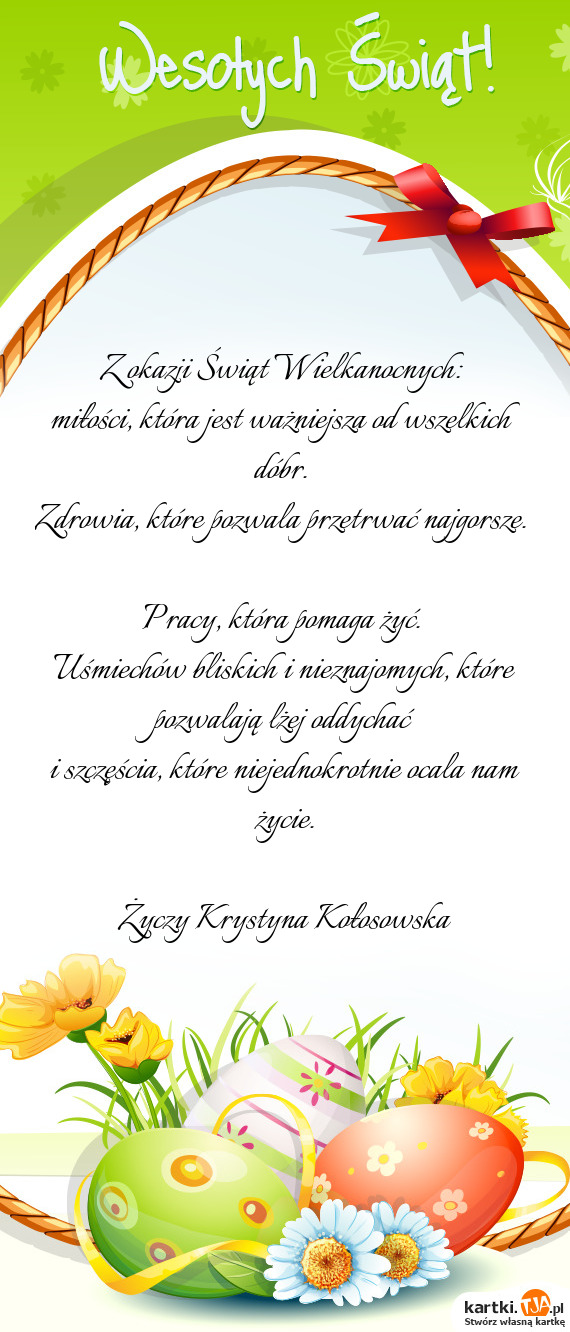 Wesołych Świąt!
Z okazji Świąt Wielkanocnych:
miłości, która jest ważniejsza od wszelkich
dóbr.
Zdrowia, które pozwala przetrwać najgorsze.
Pracy, która pomaga żyć.
Uśmiechów bliskich i nieznajomych, które
pozwalają lżej oddychać
i szczęścia, które niejednokrotnie ocala nam
życie.
Życzy Krystyna Kołosowska
kartki.TJA.pl
Stwórz własną kartkę